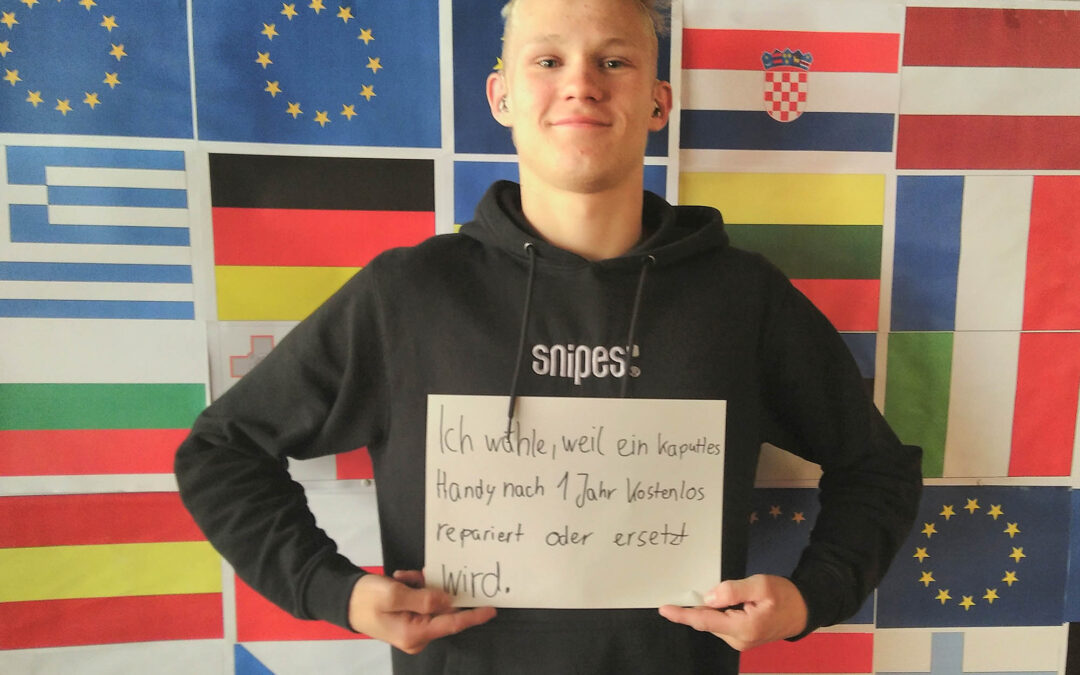 snipes®
Ich wähle, weil ein kaputtes
Handy nach 1 Jahr kostenlos
repariert oder ersetzt
wird.